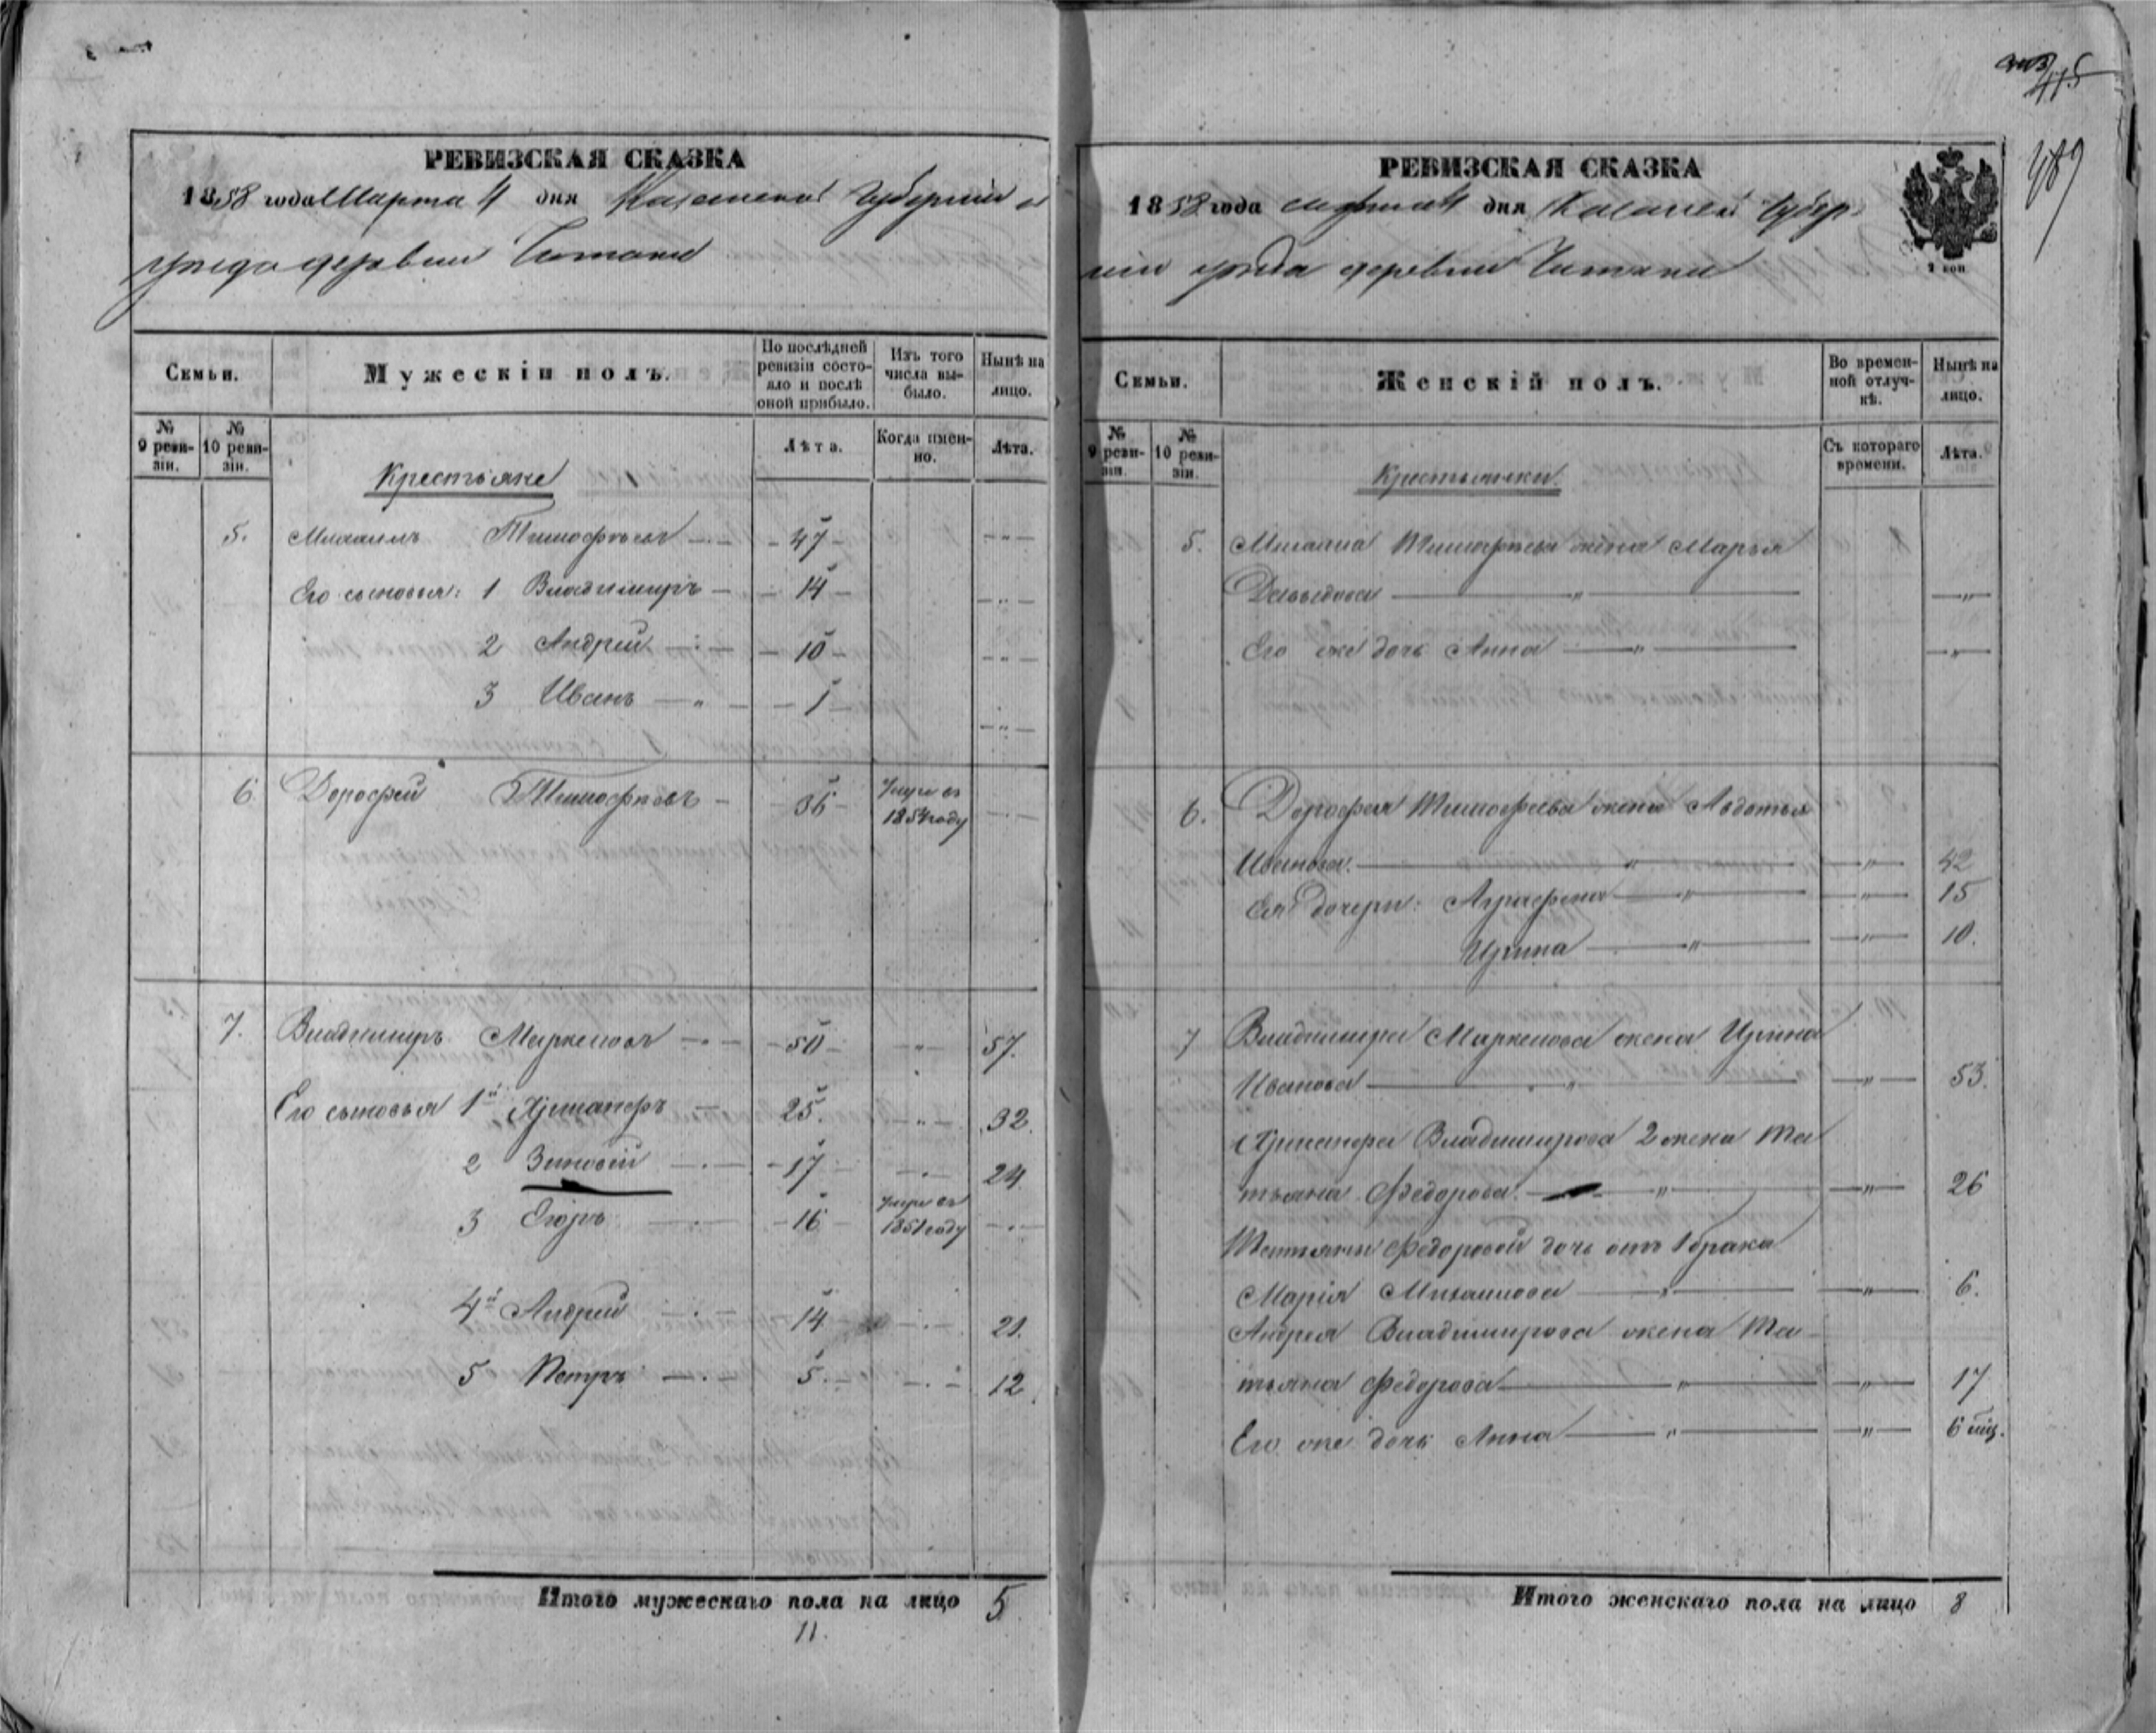 475
489
РЕВИЗСКАЯ СКАЗКА
1858 года Марта 4 дня Казанской Губернии и
уезда деревни Читани
Семьи.
Мужескій полъ.
По послѣдней ревизіи состояло и послѣ оной прибыло.
Изъ того числа выбыло.
Нынѣ на лицо.
№ 9 ревизіи.
№ 10 ревизіи.
Лѣта.
Когда именно.
Лѣта.
Крестьяне
5. Михаилъ Тимофѣевъ 47
Его сыновья: 1 Владимиръ 14
2 Андрей 10
3 Иванъ 1
6 Дорофей Тимофѣевъ 36 умре въ 1854 году
7. Владимиръ Маркеловъ 50 57.
Его сыновья 1й Хрисанфъ 25. 32.
2 Зиновій 17 24
3 Егоръ 16 умре въ 1851 году
4й Андрей 14 21.
5 Петръ 5 12.
Итого мужескаго пола на лицо 5
11.
РЕВИЗСКАЯ СКАЗКА
1858 года Марта 4 дня Казанской Губер-
ніи уезда деревни Читани
2 коп
Семьи.
Женскій полъ.
Во временной отлучкѣ.
Нынѣ на лицо.
№ 9 ревизіи.
№ 10 ревизіи.
Съ котораго времени.
Лѣта.
Крестьянки.
5. Михаила Тимофѣева жена Марья
Давыдова
Его же дочь Анна
6. Дорофея Тимофѣева жена Авдотья
Иванова. 42
Ея дочери: Аграфена 15
Ирина 10.
7 Владимира Маркелова жена Ирина
Иванова 53.
Хрисанфа Владимирова 2 жена Та
тьяна Федорова. 26
Татьяны Федоровой дочь отъ 1 брака
Марія Михайлова 6.
Андрея Владимирова жена Та-
тьяна Федорова 17
Его же дочь Анна 6 мѣс.
Итого женскаго пола на лицо 8